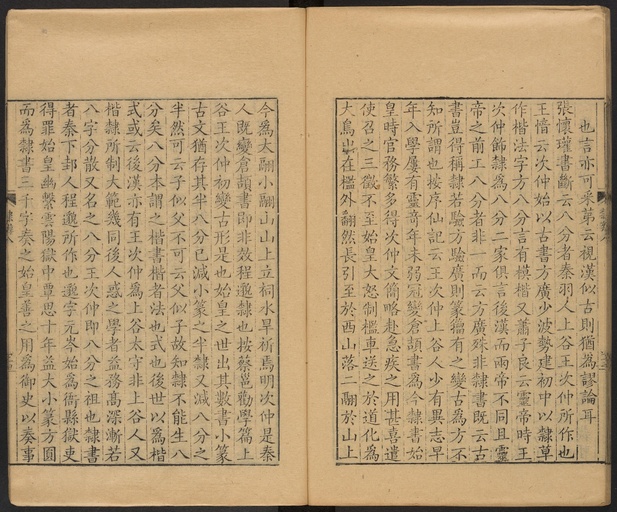 也言亦可采第云視漢似古則猶為謬論耳
張懷瓘書斷云八分者秦羽人上谷王次仲所作也
王愔云次仲始以古書方廣少波勢建初中以隸草
作楷法字方八分言有模楷又蕭子良云靈帝時王
次仲飾隸為八分二家俱言後漢而兩帝不同且靈
帝之前工八分者非一而云方廣殊非隸書既云古
書豈得稱隸若驗方驗廣則篆籀有之變古為方不
知所謂也按序仙記云王次仲上谷人少有異志早
年入學屢有靈奇年未弱冠變倉頡書為今隸書始
皇時官務繁多得次仲文簡略赴急疾之用甚喜遣
使召之三徵不至始皇大怒制檻車送之於道化為
大鳥出在檻外翻然長引至於西山落二翮於山上
今為大翮小翮山山上立祠水旱祈焉明次仲是秦
人既變倉頡書即非效程邈隸也按蔡邕勸學篇上
谷王次仲初變古形是也始皇之世出其數書小篆
古文猶存其半八分已減小篆之半隸又減八分之
半然可云子似父不可云父似子故知隸不能生八
分矣八分本謂之楷書楷者法也式也後世以為楷
式或云後漢亦有王次仲為上谷太守非上谷人又
楷隸所制大範幾同後人惑之學者益務高深漸若
八字分散又名之八分王次仲即八分之祖也隸書
者秦下邽人程邈所作也邈字元岑始為衙縣獄吏
得罪始皇幽繫雲陽獄中覃思十年益大小篆方圓
而為隸書三千字奏之始皇善之用為御史以奏事